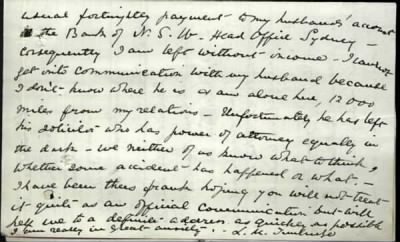 usual fortnightly payment to my husbands' account
in the Bank of N. S. W. Head Office Sydney —
consequently I am left without income — I cannot
get into communication with my husband because
I don't know where he is & am alone here, 12000
miles from my relations — Unfortunately he has left
his solicitor who has power of attorney equally in
the dark — we neither of us know what to think,
whether some accident has happened or what. —
I have been thus frank hoping you will not treat
it quite as an official communication but will
help me to a definite address as quickly as possible
I am really in great anxiety. — L. M.